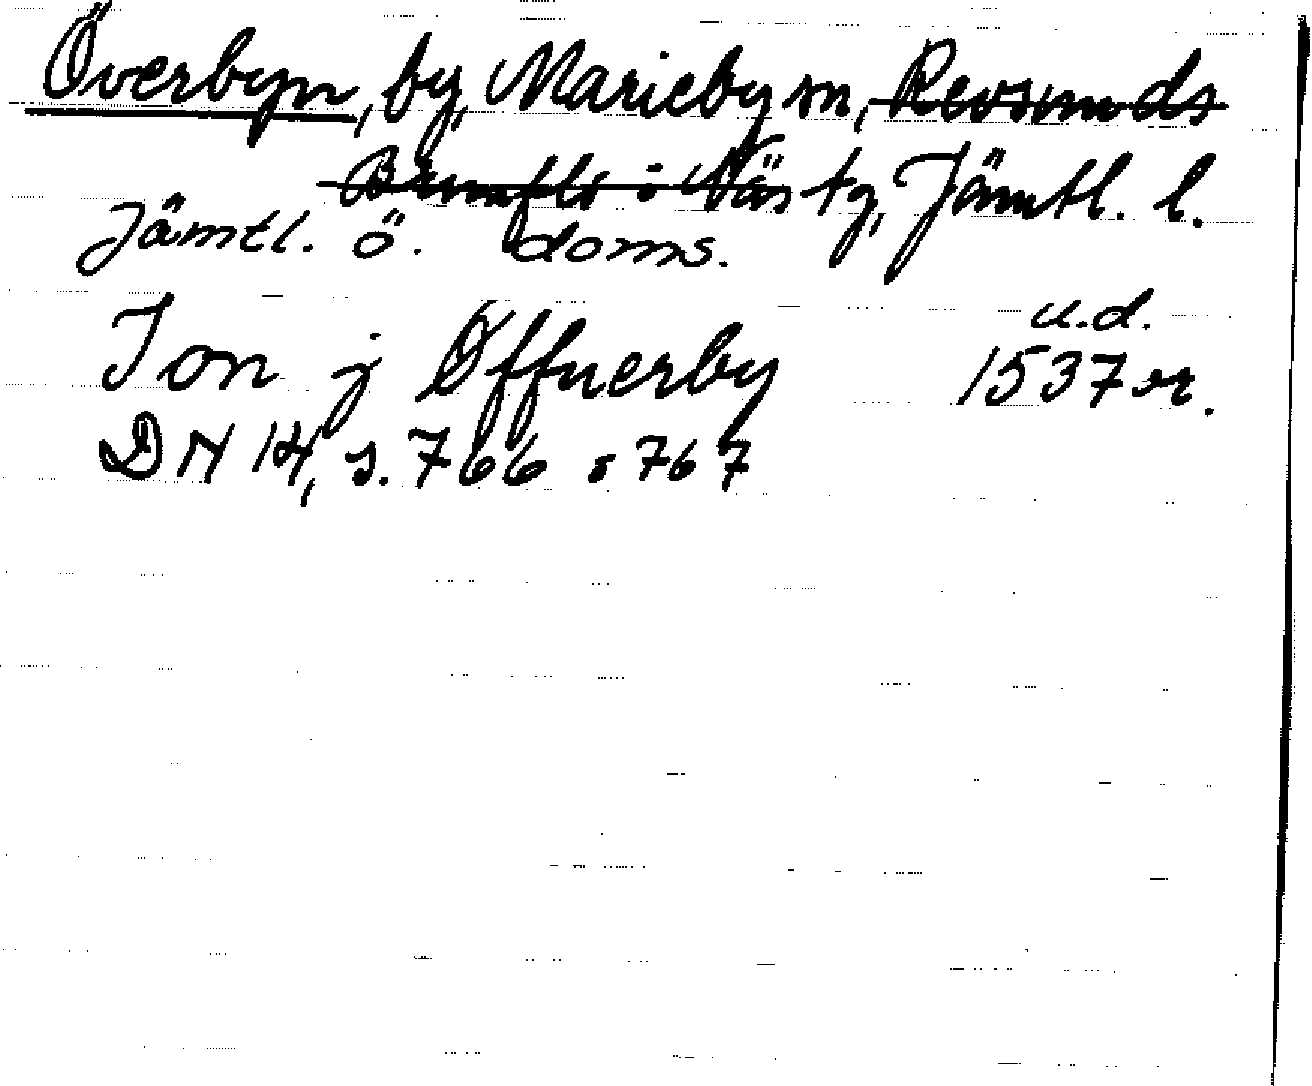 Överbyn, by, Marieby sn, Revsunds
Brunflo o Näs tg, Jämtl. l.
Jämtl. ö. doms.
u.d.
Ion j Øffuerby 1537 or.
DN 14, s. 766 o 767